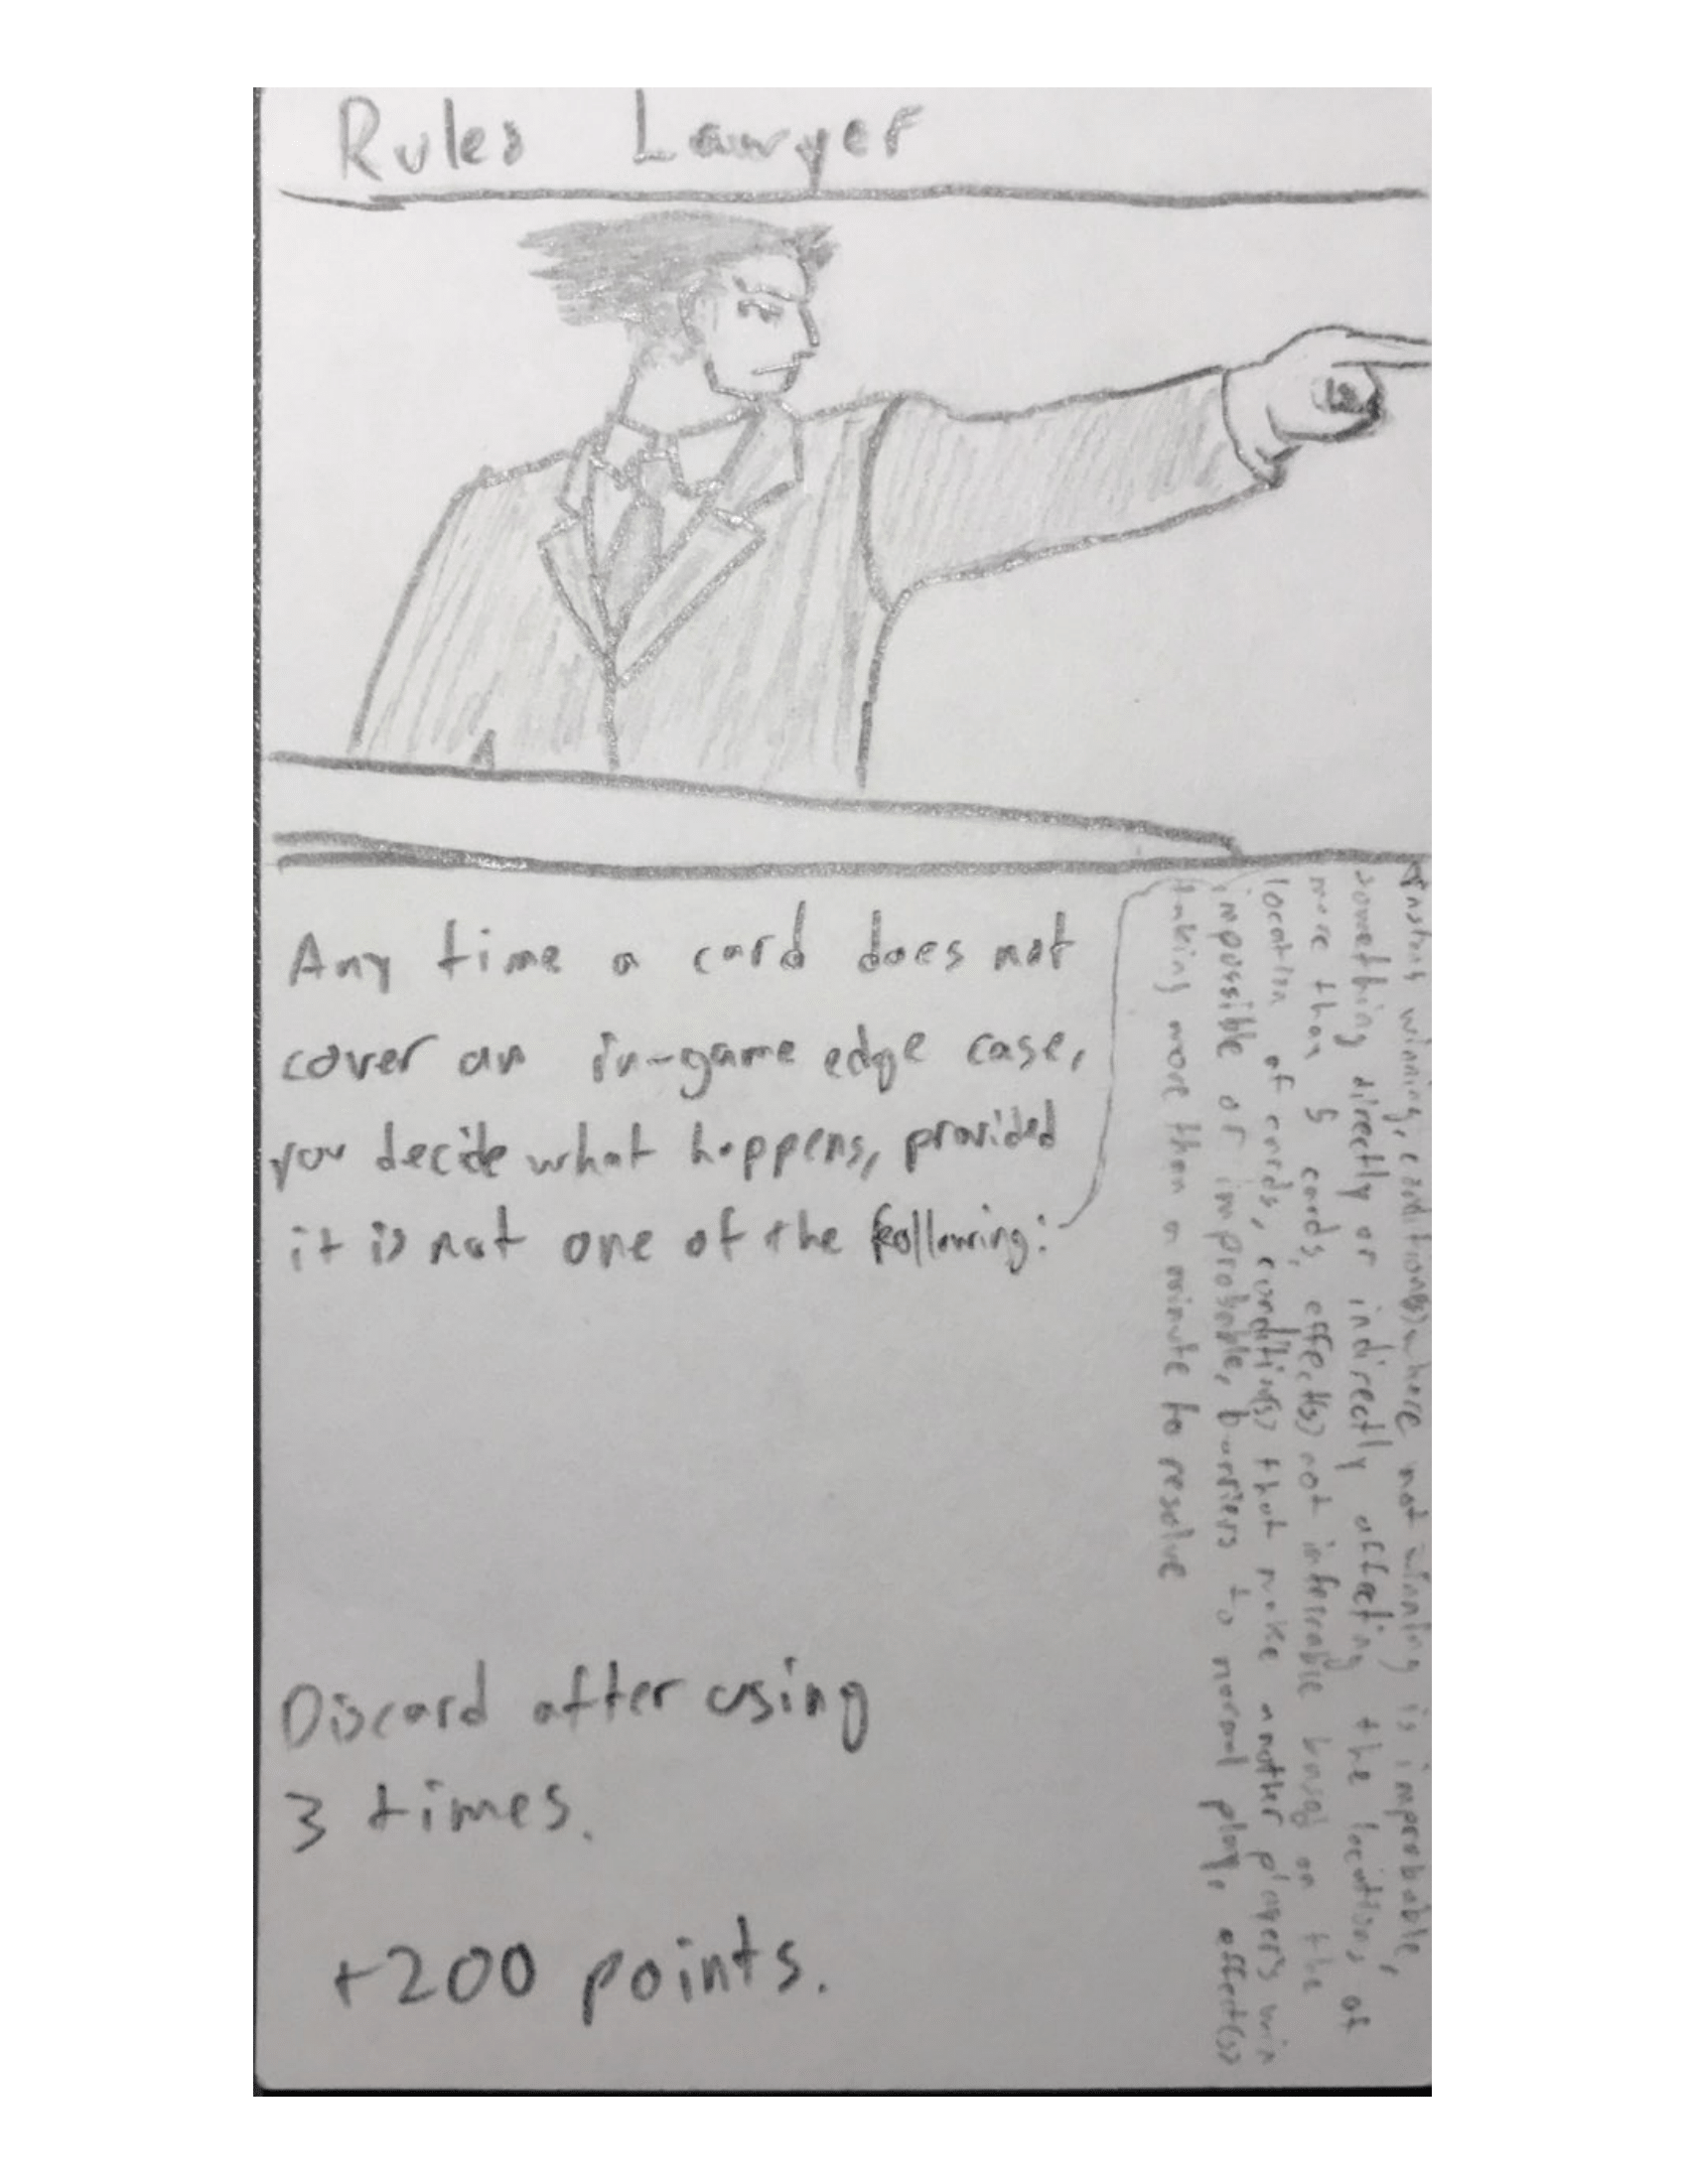 Rules Lawyer
Any time a card does not
cover an in-game edge case,
you decide what happens, provided
it is not one of the following:
instant winning, condition(s) where not winning is improbable,
something directly or indirectly affecting the locations of
more than 5 cards, effect(s) not inferable based on the
location of cards, condition(s) that make another player's win
impossible or improbable, barriers to normal play, effect(s)
taking more than a minute to resolve
Discard after using
3 times.
+200 points.